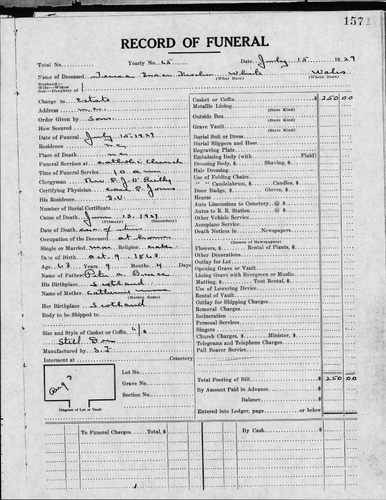 157
RECORD OF FUNERAL
Total No. Yearly No. 45 Date July 15 1929
Name of Deceased White Wales
(What Race) (Where Born)
Husband—
Wife—Widow
Son—Daughter of
Charge to Estate
Address
Order Given by Son
How Secured
Date of Death July 15-1929
Residence
Place of Death
Funeral Services at Catholic Church
Time of Funeral Service 10 am
Clergyman Rev.
Certifying Physician
His Residence
Number of Burial Certificate
Cause of Death
(Primary) (Secondary)
Date of Death
Occupation of the Deceased at home
Single or Married Religion
Date of Birth Oct. 9 - 1863
Age Years 9 Months 4 Days
Name of Father Peter
His Birthplace Scotland
Name of Mother Catherine
(Maiden Name)
Her Birthplace Scotland
Body to be Shipped to
Size and Style of Casket or Coffin
Manufactured by
Interment at Cemetery
Lot No.
Grave No.
Section No.
Diagram of Lot or Vault
Casket or Coffin $ 250 00
Metallic Lining
(State Kind)
Outside Box
(State Kind)
Grave Vault
(State Kind)
Burial Suit or Dress
Burial Slippers and Hose
Engraving Plate
Embalming Body (with Fluid)
Dressing Body, $ Shaving, $
Hair Dressing
Use of Folding Chairs
" " Candelabrum, $ Candles, $
Door Badge, $ Gloves, $
Hearse
Auto Limousines to Cemetery, @ $
Autos to R. R. Station @ $
Aeroplane Service
Death Notices in Newspapers
(Names of Newspapers)
Flowers, $ Rental of Plants, $
Other Decorations
Outlay for Lot
Opening Grave or Vault
Lining Grave with Evergreen or Muslin
Matting, $ Tent Rental, $
Use of Lowering Device
Rental of Vault
Outlay for Shipping Charges
Removal Charges
Incineration
Personal Services
Singers
Church Charges, $ Minister, $
Telegrams and Telephone Charges
Pall Bearer Service
Total Footing of Bill $ 250 00
By Amount Paid in Advance $
Balance $
Entered into Ledger, page or below $
To Funeral Charges $
By Cash $